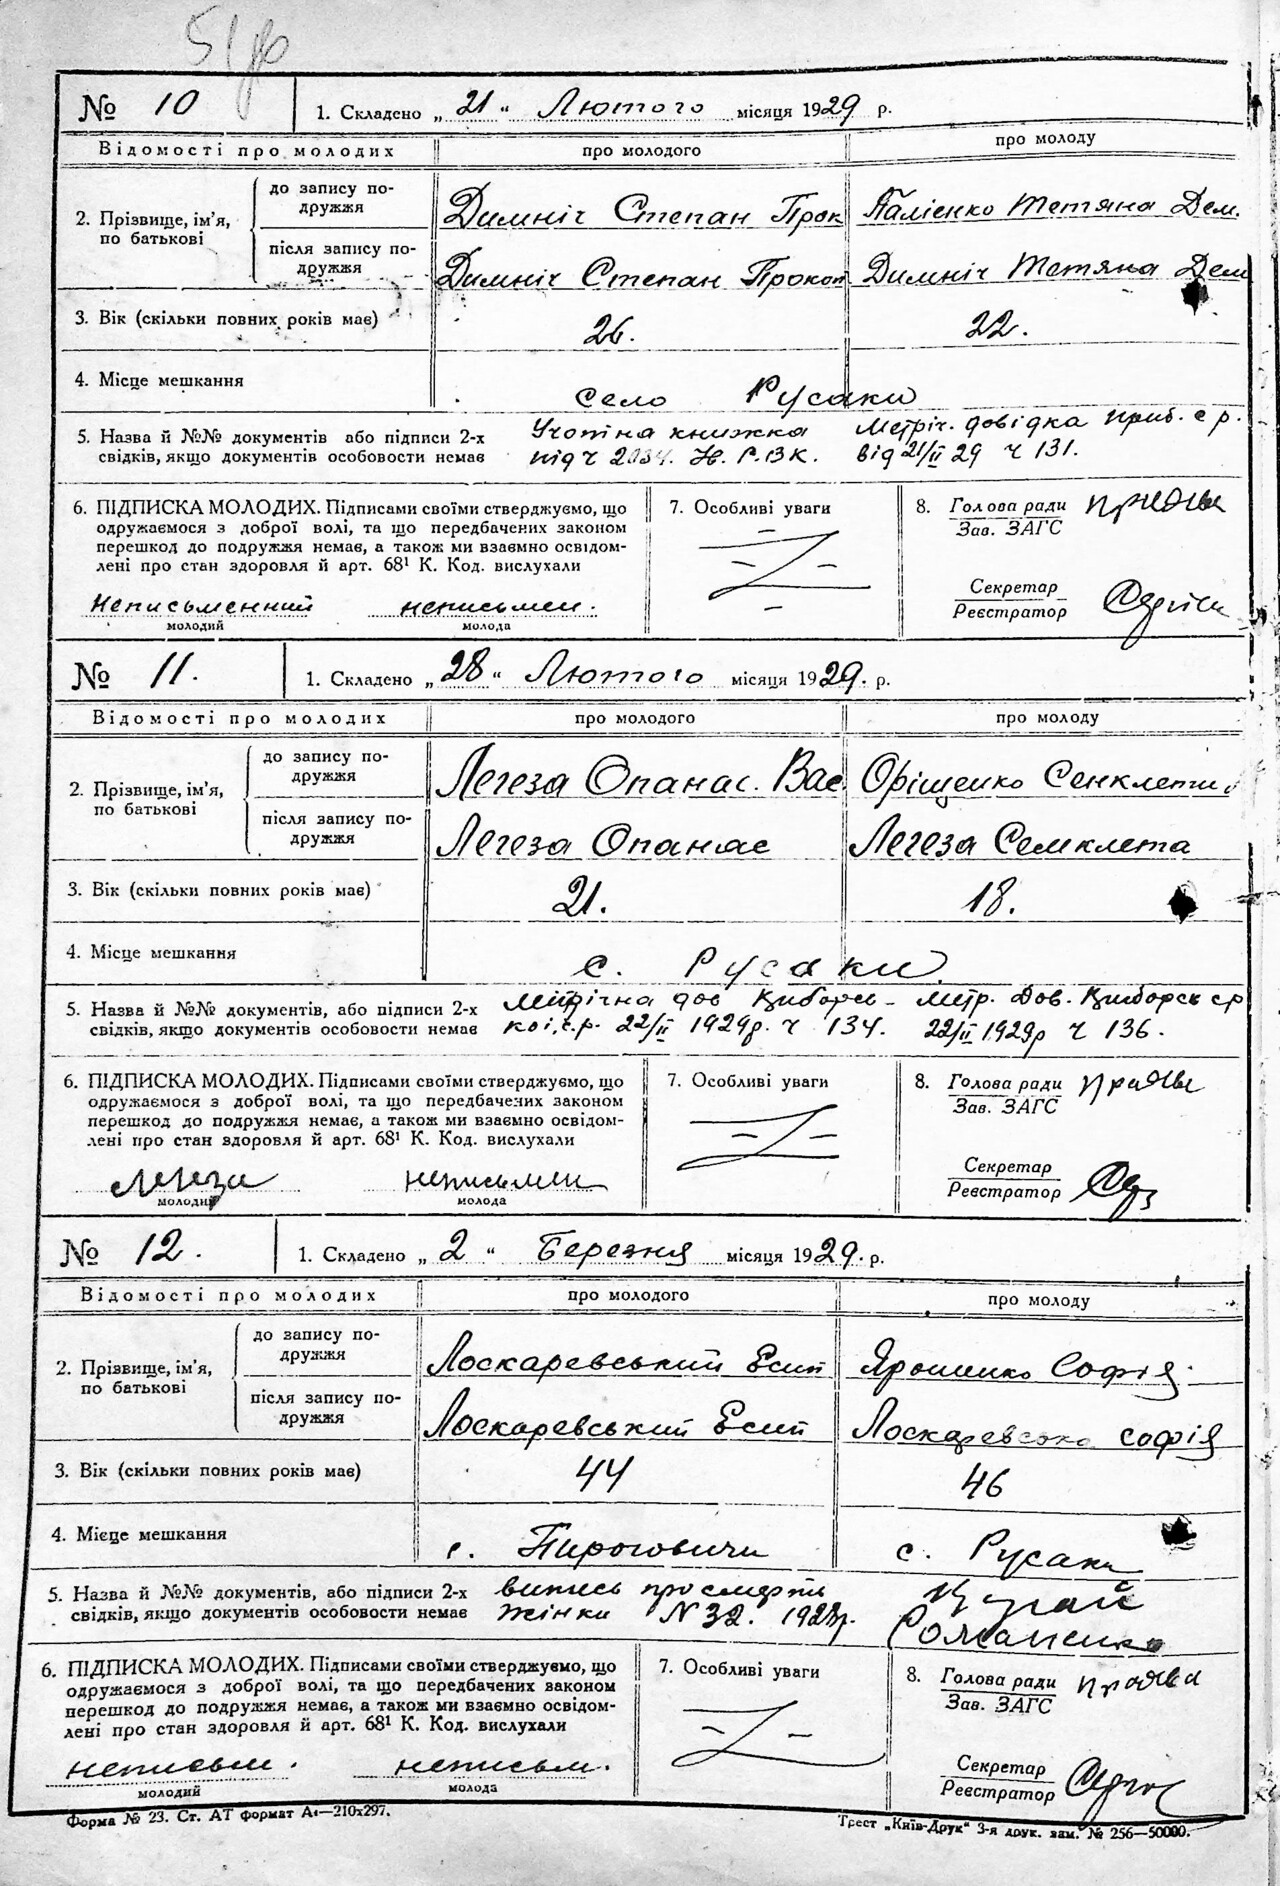 № 10 1. Складено „ 21 “ Лютого місяця 1929 р.
Відомості про молодих про молодого про молоду
2. Прізвище, ім’я, по батькові
до запису по-
дружжя
Димніч Степан Прок Палієнко Тетяна Дем.
після запису по-
дружжя
Димніч Степан Прокоп Димніч Тетяна Дем
3. Вік (скільки повних років має) 26. 22.
4. Місце мешкання село Русаки
5. Назва й №№ документів або підписи 2-х Учотна книжка Метріч. довідка приб. с р.
свідків, якщо документів особовости немає під ч Н. Р. В К. від 21/II 29 ч 131.
6. ПІДПИСКА МОЛОДИХ. Підписами своїми стверджуємо, що
одружаємося з доброї волі, та що передбачених законом
перешкод до подружжя немає, а також ми взаємно освідом-
лені про стан здоровля й арт. 68¹ К. Код. вислухали
Неписьменний неписьмен.
молодий молода
7. Особливі уваги
8. Голова ради
Зав. ЗАГС
Секретар
Реєстратор
№ 11. 1. Складено „ 28 “ Лютого місяця 1929. р.
Відомості про молодих про молодого про молоду
2. Прізвище, ім’я, по батькові
до запису по-
дружжя
Легеза Опанас. Вас Оріщенко Сенклети
після запису по-
дружжя
Легеза Опанас Легеза Семклета
3. Вік (скільки повних років має) 21. 18.
4. Місце мешкання с. Русаки
5. Назва й №№ документів, або підписи 2-х Метрічна дов Циборсь- Метр. Дов. Циборськ ср
свідків, якщо документів особовости немає кої, с.р. 22/II 1929р. ч 134. 22/II 1929р ч 136.
6. ПІДПИСКА МОЛОДИХ. Підписами своїми стверджуємо, що
одружаємося з доброї волі, та що передбачених законом
перешкод до подружжя немає, а також ми взаємно освідом-
лені про стан здоровля й арт. 68¹ К. Код. вислухали
Легеза неписьмен
молодий молода
7. Особливі уваги
8. Голова ради
Зав. ЗАГС
Секретар
Реєстратор
№ 12. 1. Складено „ 2 “ Березня місяця 1929. р.
Відомості про молодих про молодого про молоду
2. Прізвище, ім’я, по батькові
до запису по-
дружжя
Лоскаревський Єсип Ярошенко Софія.
після запису по-
дружжя
Лоскаревський Єсип Лоскаревська Софія
3. Вік (скільки повних років має) 44 46
4. Місце мешкання с. Пироговичи с. Русаки
5. Назва й №№ документів, або підписи 2-х випись про смерть
свідків, якщо документів особовости немає жінки N 32. Романенко
6. ПІДПИСКА МОЛОДИХ. Підписами своїми стверджуємо, що
одружаємося з доброї волі, та що передбачених законом
перешкод до подружжя немає, а також ми взаємно освідом-
лені про стан здоровля й арт. 68¹ К. Код. вислухали
неписьм. неписьм.
молодий молода
7. Особливі уваги
8. Голова ради
Зав. ЗАГС
Секретар
Реєстратор
Форма № 23. Ст. АТ формат А₄—210х297. Трест „Київ-Друк“ 3-я друк. зам. № 256—50000.